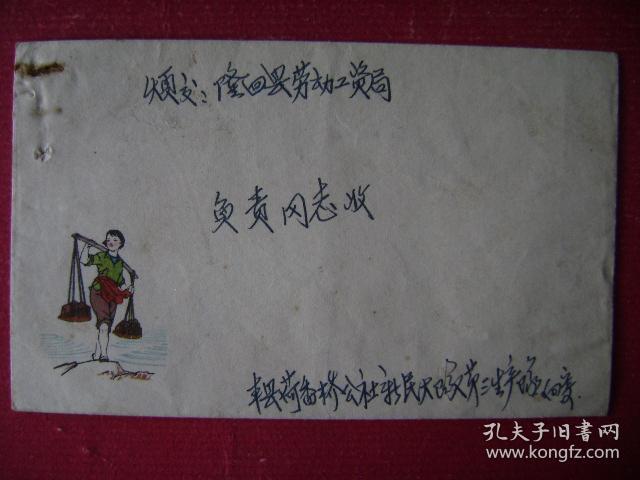 烦交：隆回县劳动工资局
负责同志收
本县荷香桥公社新民大队第三生产队
孔夫子旧书网
www.kongfz.com